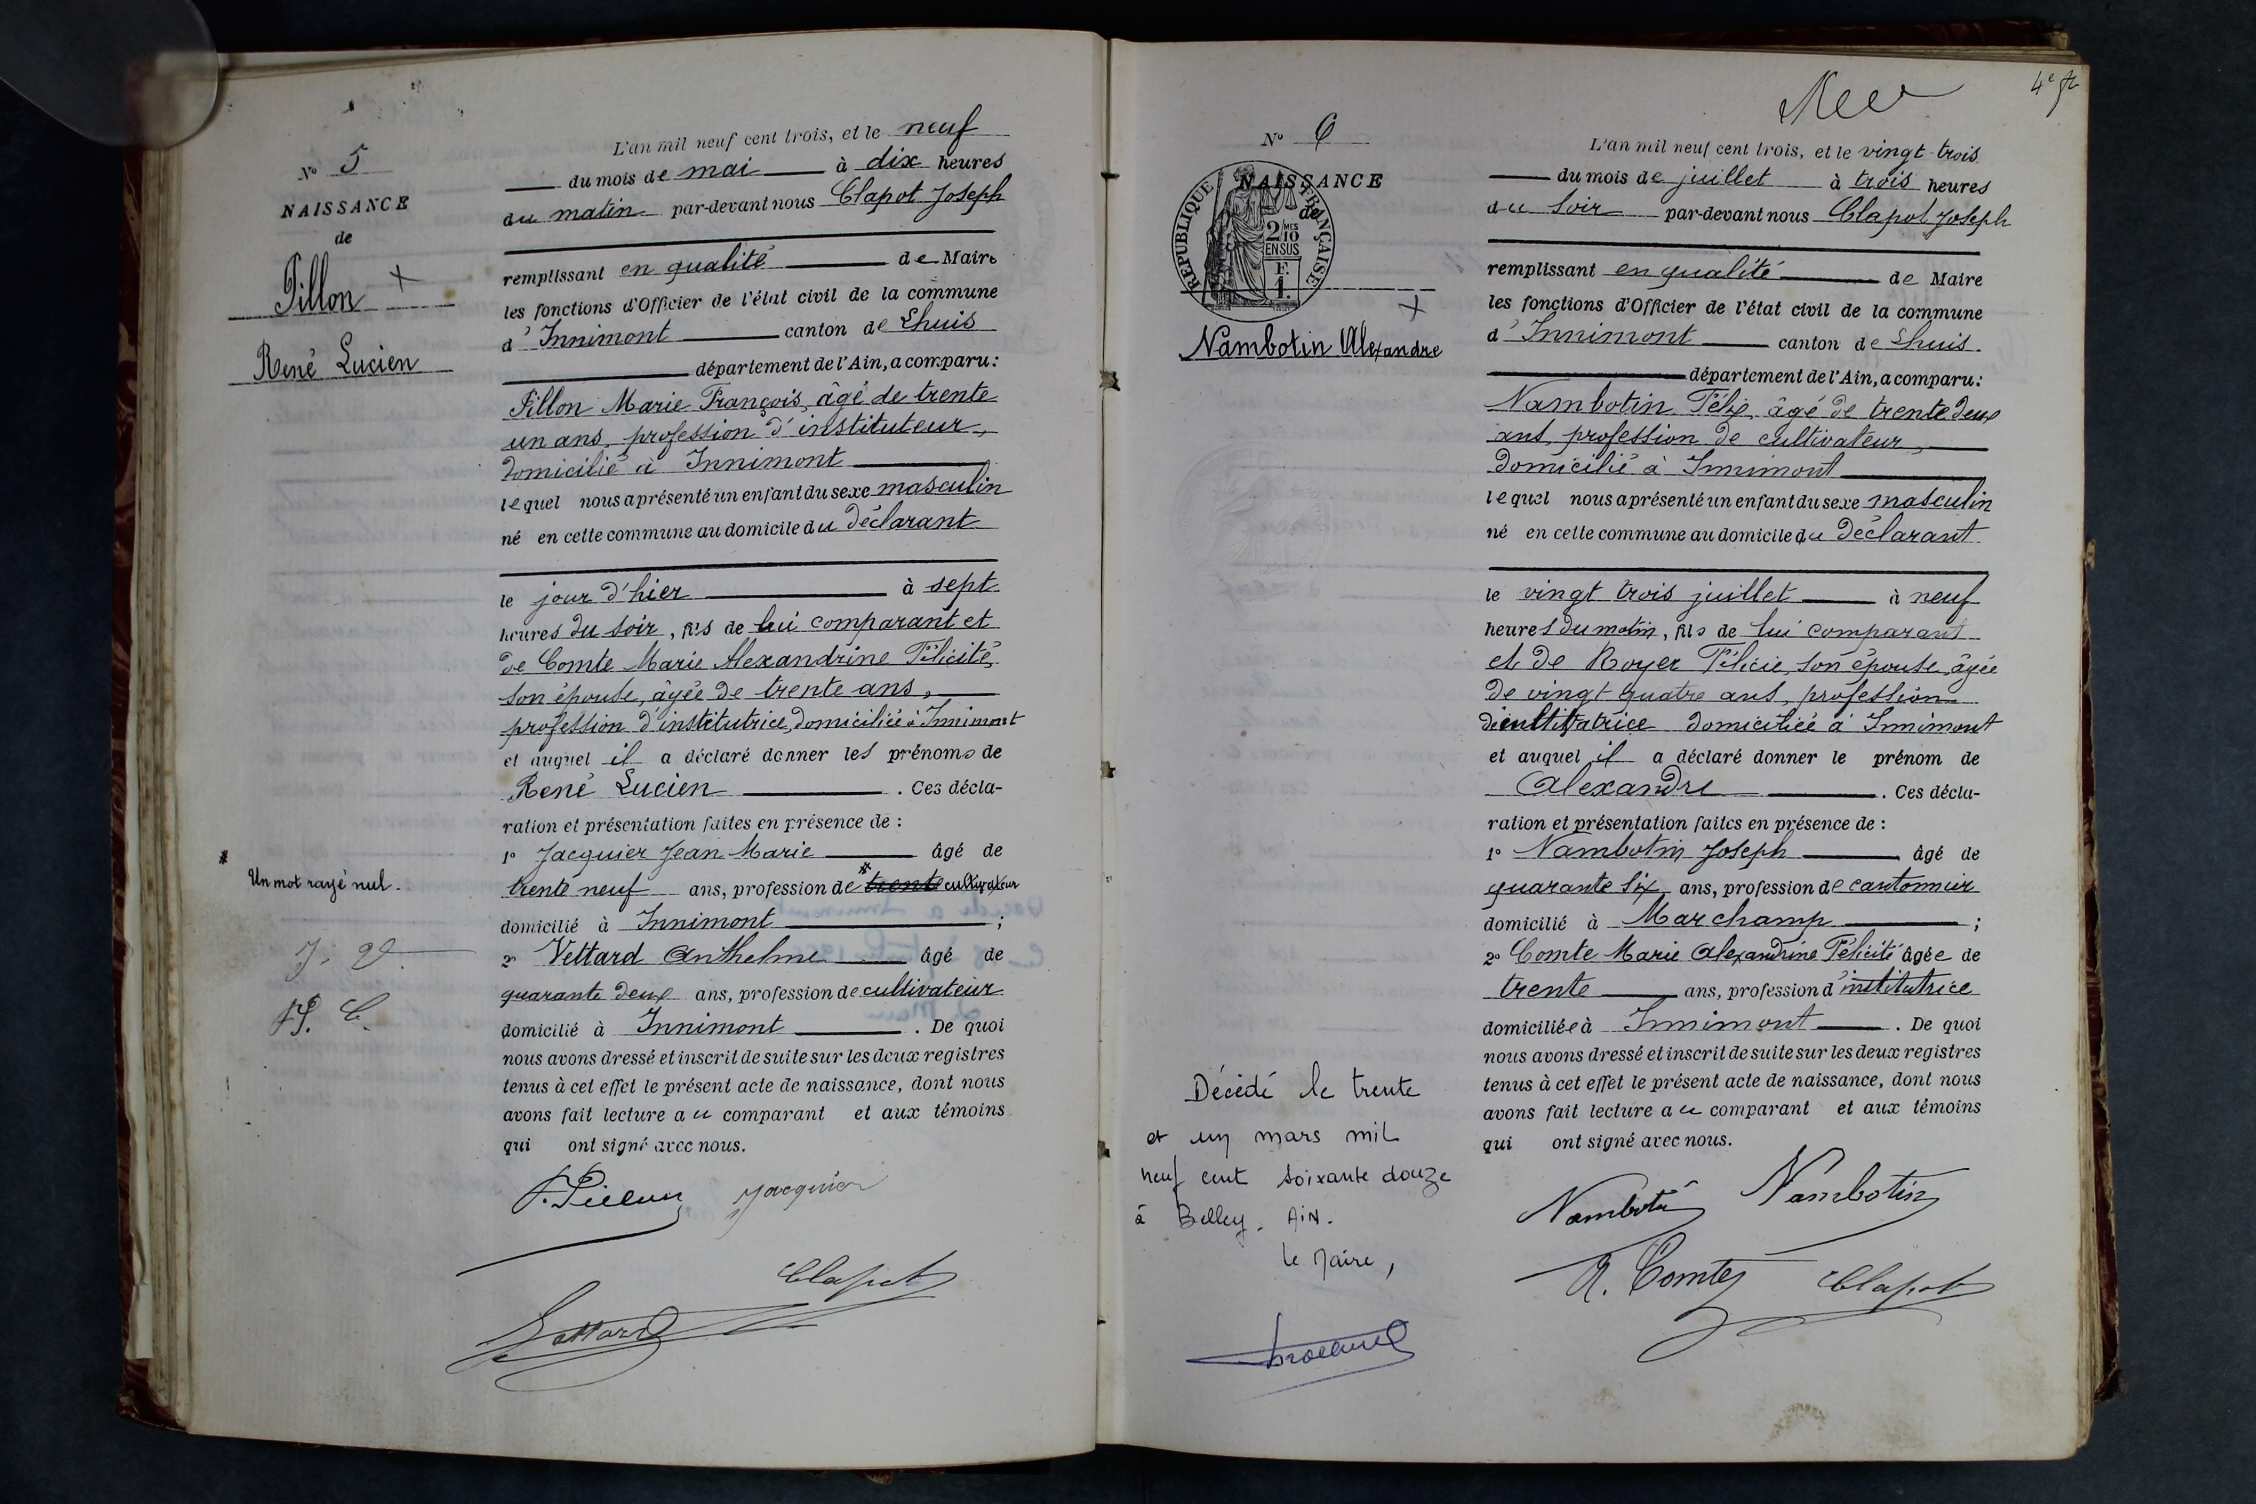 N° 5
NAISSANCE
de
Pillon
René Lucien
L'an mil neuf cent trois, et le neuf
du mois de mai à dix heures
du matin par-devant nous Clapot Joseph
remplissant en qualité de Maire
les fonctions d'Officier de l'état civil de la commune
d'Innimont canton de Lhuis
département de l'Ain, a comparu:
Pillon Marie François, âgé de trente
un ans, profession d'instituteur,
domicilié à Innimont
lequel nous a présenté un enfant du sexe masculin
né en cette commune au domicile du déclarant
le jour d'hier à sept
heures du soir, fils de lui comparant et
de Comte Marie Alexandrine Félicité,
son épouse, âgée de trente ans,
profession d'institutrice, domiciliée à Innimont
et auquel il a déclaré donner les prénoms de
René Lucien. Ces décla-
ration et présentation faites en présence de :
1° Jacquier Jean Marie âgé de
trente neuf ans, profession de * trente cultivateur
domicilié à Innimont ;
2° Vettard Anthelme âgé de
quarante deux ans, profession de cultivateur
domicilié à Innimont. De quoi
nous avons dressé et inscrit de suite sur les deux registres
tenus à cet effet le présent acte de naissance, dont nous
avons fait lecture au comparant et aux témoins
qui ont signé avec nous.
* Un mot rayé nul.
J. V.
F.P. C.
F. Pillon Jacquier
Clapot
Vettard
4e ft
N° 6
NAISSANCE
de
RÉPUBLIQUE FRANÇAISE
2 MES
10
EN SUS
F.
1.
Nambotin Alexandre
L'an mil neuf cent trois, et le vingt-trois
du mois de juillet à trois heures
du soir par-devant nous Clapot Joseph
remplissant en qualité de Maire
les fonctions d'Officier de l'état civil de la commune
d'Innimont canton de Lhuis.
département de l'Ain, a comparu:
Nambotin Félix, âgé de trente deux
ans, profession de cultivateur,
domicilié à Innimont
lequel nous a présenté un enfant du sexe masculin
né en cette commune au domicile du déclarant
le vingt trois juillet à neuf
heures du matin, fils de lui comparant
et de Royer Félicie, son épouse, âgée
de vingt quatre ans, profession
de cultivatrice domiciliée à Innimont
et auquel il a déclaré donner le prénom de
Alexandre. Ces décla-
ration et présentation faites en présence de :
1° Nambotin Joseph âgé de
quarante six ans, profession de cantonnier
domicilié à Marchamp ;
2° Comte Marie Alexandrine Félicité âgée de
trente ans, profession d'institutrice
domiciliée à Innimont. De quoi
nous avons dressé et inscrit de suite sur les deux registres
tenus à cet effet le présent acte de naissance, dont nous
avons fait lecture au comparant et aux témoins
qui ont signé avec nous.
Décédé le trente
et un mars mil
neuf cent soixante douze
à Belley. AIN.
Le Maire,
Nambotin Nambotin
A. Comte Clapot